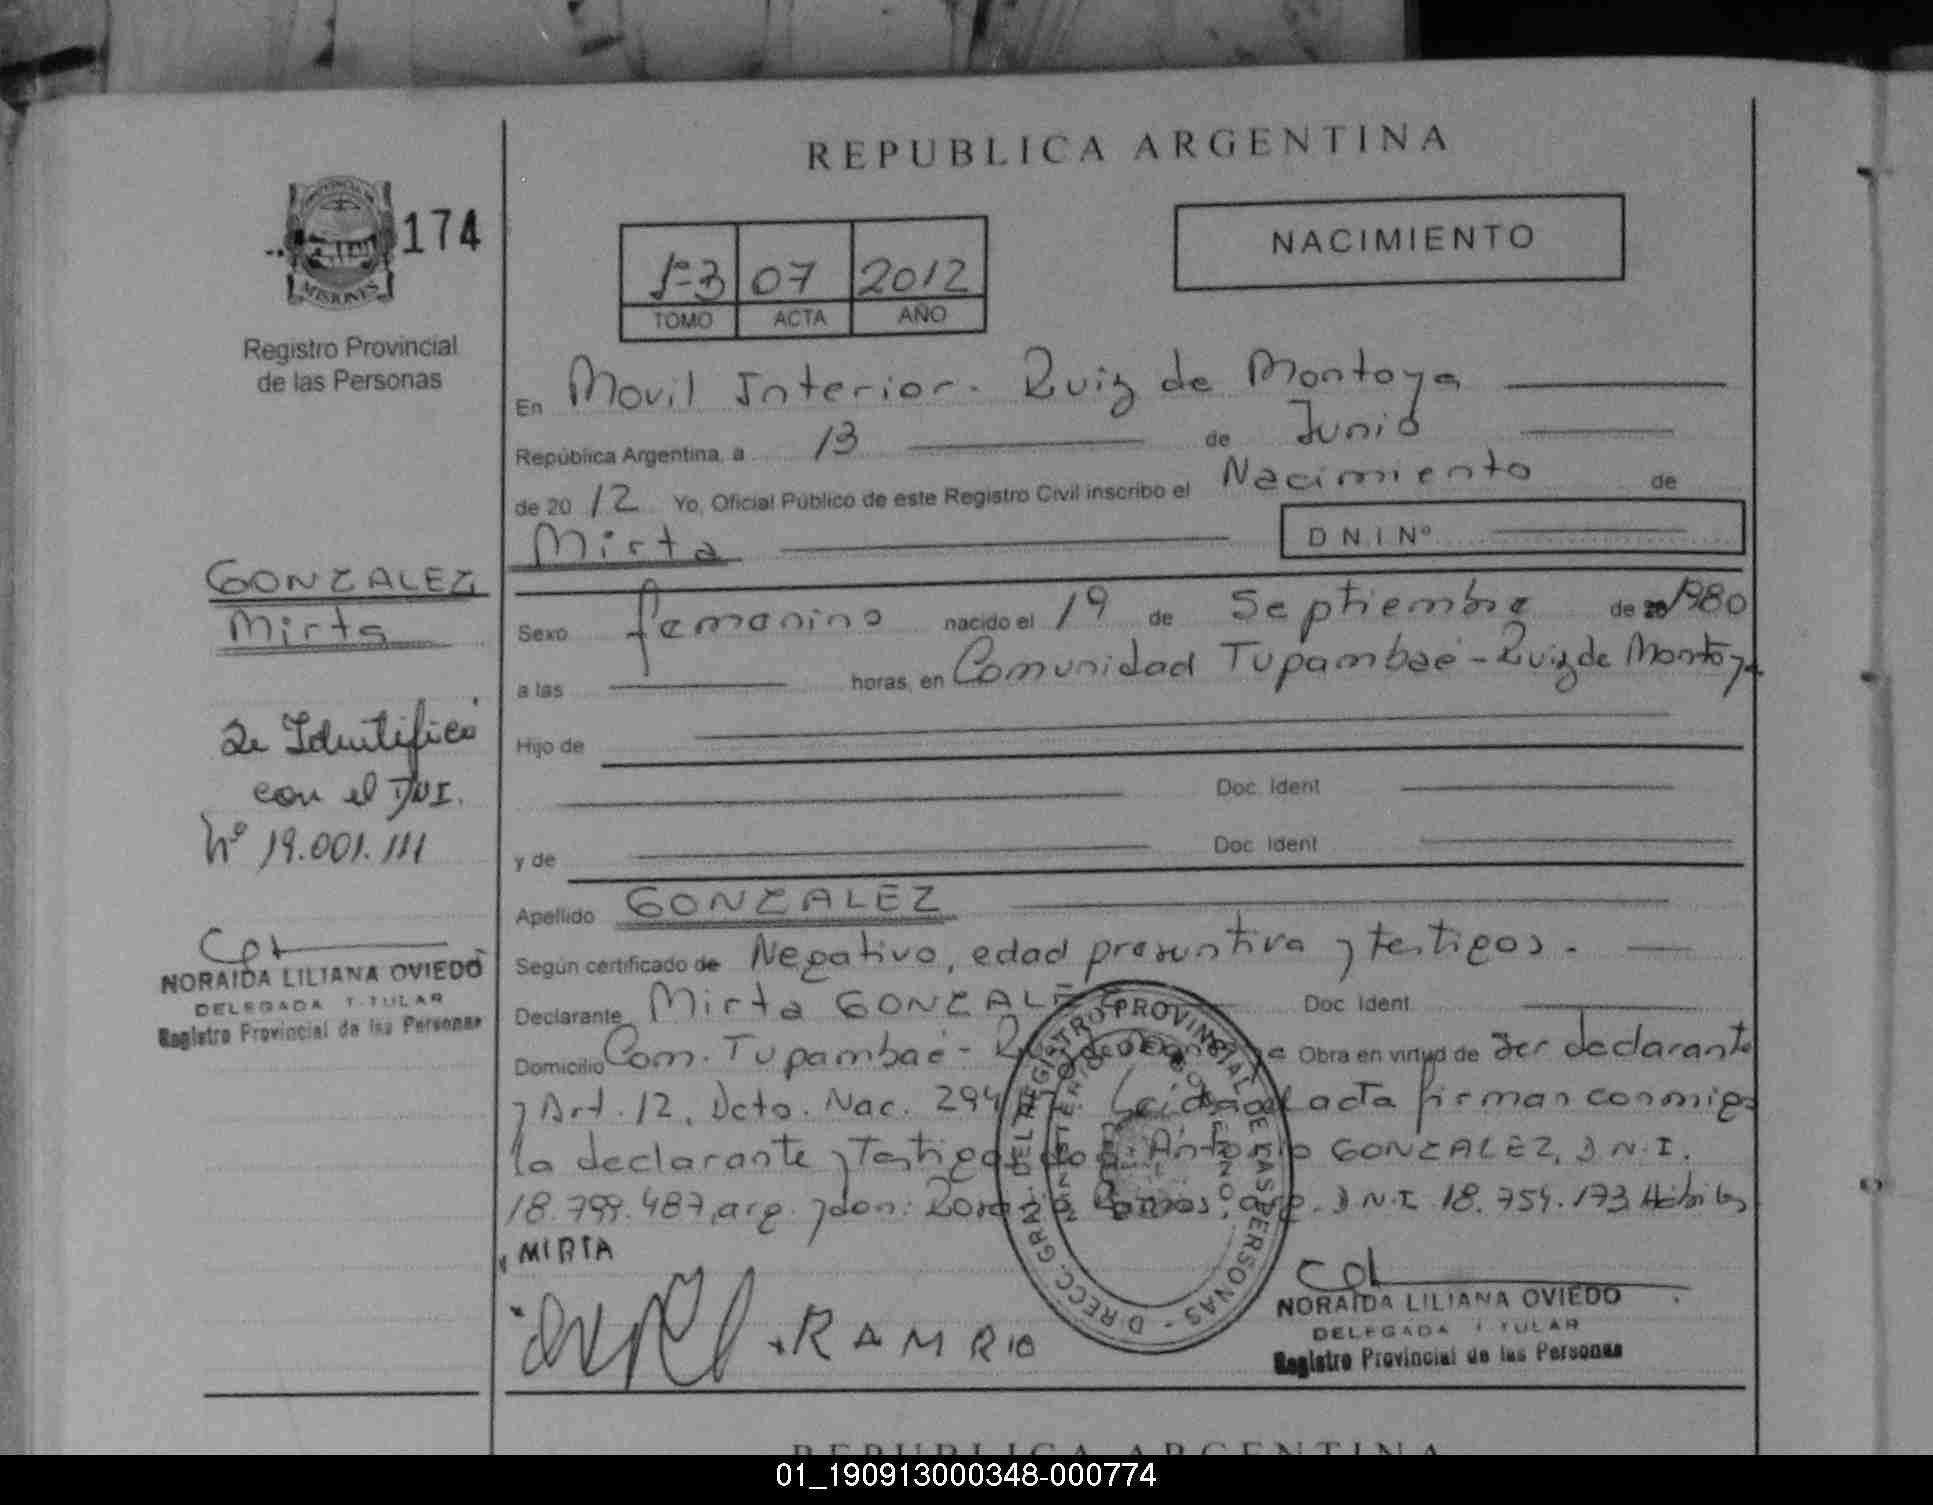 REPUBLICA ARGENTINA
PROVINCIA DE
MISIONES
174
Registro Provincial
de las Personas
NACIMIENTO
1º-3 07 2012
TOMO ACTA AÑO
En Movil Interior - Ruiz de Montoya
República Argentina, a 13 de Junio
de 20 12 Yo, Oficial Público de este Registro Civil inscribo el Nacimiento de
Mirta D N.I Nº
GONZALEZ
Mirta
Sexo femenino nacido el 19 de Septiembre de 20 1980
a las horas, en Comunidad Tupambaé - Ruiz de Montoya
Se Identificó
con el DNI.
Nº 19.001.111
Hijo de
Doc. Ident
y de Doc. Ident
Apellido GONZALEZ
Según certificado de Negativo, edad presuntiva y testigos.
Declarante Mirta GONZALEZ Doc. Ident
Domicilio Com. Tupambaé - Ruiz de Montoya Obra en virtud de ser declarante
y Art. 12, Dcto. Nac. Leida el acta firman conmigo
la declarante y testigos don: Antonio GONZALEZ, D.N.I.
18.799.487, arg. y don: Ramos, arg. D.N.I. 18.754.173 Hábiles
NORAIDA LILIANA OVIEDO
DELEGADA TITULAR
Registro Provincial de las Personas
MIRTA
RAMRIO
DIRECC. GRAL. DEL REGISTRO PROVINCIAL DE LAS PERSONAS
MINISTERIO DE GOBIERNO
NORAIDA LILIANA OVIEDO
DELEGADA TITULAR
Registro Provincial de las Personas
REPUBLICA ARGENTINA
01_190913000348-000774